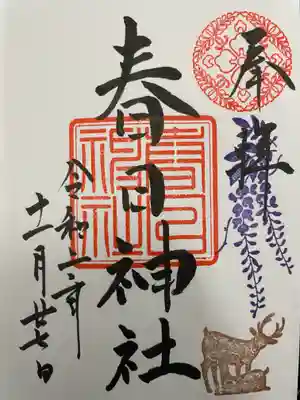 奉拝
春日神社
令和二年
十一月廿七日
春日
神社